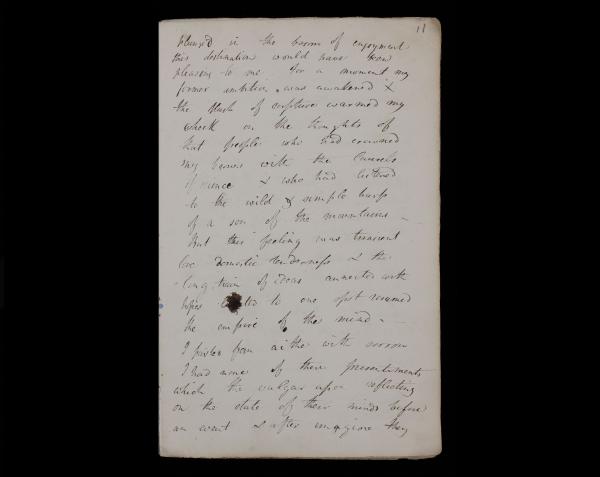 11
plunged in the bosom of enjoyment
this destination would have been
pleasing to me for a moment my
former ambition was awakened &
the flush of rapture warmed my
cheek on the thoughts of
that people who had crowned
my brows with the laurels
of science & who had listened
to the wild & simple harp
of a son of the mountains –
But this feeling was transient
love domestic tenderness & the
long train of ideas connected with
hopes to one spot resumed
the empire of the mind –
I parted from with sorrow
I had none of those presentiments
which the vulgar upon reflecting
on the state of their minds before
an event & after imagine they